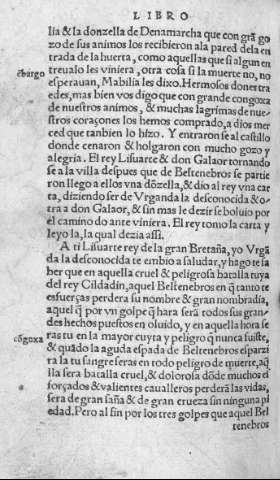 LIBRO
lia & la donzella de Denamarcha que con grā go
zo de sus animos los recibieron ala pared dela en
trada de la huerta, como aquellas que si algun en
ēbargo
treualo les viniera, otra cosa si la muerte no, no
esperauan, Mabilia les dixo. Hermosos dones tra
edes, mas bien vos digo que con grande congoxa
de nuestros animos, & muchas lagrimas de nue-
stros coraçones los hemos comprado, a dios mer
ced que tanbien lo hizo. Y entraron se al castillo
donde cenaron & holgaron con mucho gozo y
alegria. El rey Lisuarte & don Galaor tornando
se a la villa despues que de Beltenebros se partie
ron llego a ellos vna dōzella, & dio al rey vna car
ta, diziendo ser de Vrganda la desconocida & o-
tra a don Galaor, & sin mas le dezir se boluio por
el camino do ante viniera. El rey tomo la carta y
leyo la, la qual dezia assi.
A ti Lisuarte rey de la gran Bretaña, yo Vrgā
da la desconocida te embio a saludar, y hago te sa
ber que en aquella cruel & peligrosa batalla tuya
del rey Cildadin, aquel Beltenebros en q̄ tanto te
esfuerças perdera su nombre & gran nombradia,
aquel q̄ por vn golpe q̄ hara serā todos sus gran-
des hechos puestos en oluido, y en aquella hora se
cōgoxa
ras tu en la mayor cuyta y peligro q̄ nunca fuiste,
& quādo la aguda espada de Beltenebros esparzi
ra la tu sangre seras en todo peligro de muerte, aq̄
lla sera batalla cruel, & dolorosa dōde muchos es
forçados & valientes caualleros perderā las vidas,
sera de gran saña & de gran crueza sin ninguna pi
edad. Pero al fin por los tres golpes que aquel Bel
tenebros